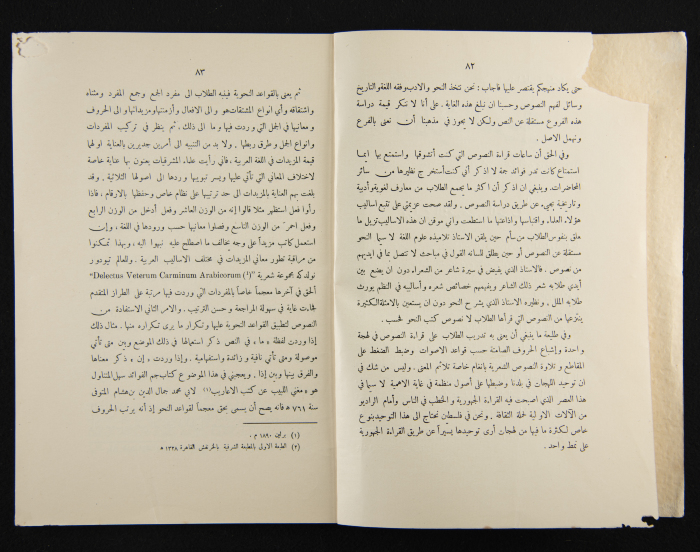 ٨٢
حتى يكاد منهجكم يقتصر عليها فاجاب : نحن نتخذ النحو والادب وفقه اللغة والتاريخ
وسائل لفهم النصوص وحسبنا ان نبلغ هذه الغاية . على أنا لا ننكر قيمة دراسة
هذه الفروع مستقلة عن النص ولكن لا يجوز في مذهبنا أن نعنى بالفرع
ونهمل الاصل .
وفي الحق أن ساعات قراءة النصوص التي كنت أتشوقها واستمتع بها ايما
استمتاع كانت تدر فوائد جمة لا اذكر أني كنت أستخرج نظيرها من سائر
المحاضرات. وينبغي ان اذكر أن اكثر ما يجمع الطلاب من معارف لغوية وأدبية
وتاريخية يجيء عن طريق دراسة النصوص . ولقد صحت عزيمتي على تتبع اساليب
هؤلاء العلماء واقتباسها واذاعتها ما استطعت واني موقن ان هذه الاساليب تزيل ما
علق بنفوس الطلاب من سأم حين يلقن الاستاذ تلاميذه علوم اللغة لا سيما النحو
مستقلة عن النصوص أو حين يطلق لسانه القول في مباحث لا تتصل بما في ايديهم
من نصوص . فالاستاذ الذي يفيض في سيرة شاعر من الشعراء دون ان يضع بين
أيدي طلابه شعر ذلك الشاعر ويفهمهم خصائص شعره وأساليبه في النظم يورث
طلابه الملل . ونظيره الاستاذ الذي يشرح النحو دون ان يستعين بالامثلة الكثيرة
ينتزعها من النصوص التي قرأها الطلاب لا نصوص كتب النحو فحسب .
وفي طليعة ما ينبغي أن يعنى به تدريب الطلاب على قراءة النصوص في لهجة
واحدة وإشباع الحروف الصامتة حسب قواعد الاصوات وضبط الضغط على
المقاطع و تلاوة النصوص الشعرية بانغام خاصة تلائم المعنى . وليس من شك في
ان توحيد اللهجات في بلدنا وضبطها على أصول منظمة في غاية الاهمية لا سيما في
هذا العصر الذي اصبحت فيه القراءة الجهورية و الخطب في الناس وأمام الراديو
من الآلات الاولية لحملة الثقافة . ونحن في فلسطين نحتاج الى هذا التوحيد بنوع
خاص لكثرة ما فيها من لهجات أرى توحيدها يسيراً عن طريق القراءة الجهورية
على نمط واحد .
٨٣
ثم يعنى بالقواعد النحوية فينبه الطلاب الى مفرد الجمع وجمع المفرد ومثناه
واشتقاقه وأي انواع المشتقات هو والى الافعال وأزمنتها ومزيداتها والى الحروف
ومعانيها في الجمل التي وردت فيها وما الى ذلك. ثم ينظر في تركيب المفردات
وانواع الجمل و طرق ربطها . ولا بد من التنبيه الى أمرين جديرين بالعناية اولهما
قيمة المزيدات في اللغة العربية . فاني رأيت علماء المشرقيات يعنون بها عناية خاصة
لاختلاف المعاني التي تأتي عليها ويسر تبويبها وردها الى اصولها الثلاثية . وقد
بلغت بهم العناية بالمزيدات الى حد ترتيبها على نظام خاص وحفظها بالارقام ، فاذا
رأوا فعل استظهر مثلا قالوا إنه من الوزن العاشر وفعل أدخل من الوزن الرابع
وفعل احمرّ من الوزن التاسع وفصلوا معانيها حسب ورودها في اللغة ، وإن
استعمل كاتب مزيداً على وجه يخالف ما اصطلح عليه نبهوا اليه . وبهذا تمكنوا
من مراقبة تطور معاني المزيدات في مختلف الاساليب العربية . وللعالم تيودور
نولدكه مجموعة شعرية "Delectus Veterum Carminum Arabicorum (١)"
ألحق في آخرها معجماً خاصاً بالمفردات التي وردت فيها مرتبة على الطراز المتقدم
فجاءت غاية في سهولة المراجعة و حسن الترتيب . والامر الثاني الاستفادة من
النصوص لتطبيق القواعد النحوية عليها وتكرار ما يرى تكراره منها . مثال ذلك
إذا وردت لفظة « ما » في النص ذكر استعمالها في ذلك الموضع وبين متى تأتي
موصولة ومتى تأتي نافية و زائدة واستفهامية . وإذا وردت « إن » ذكر معناها
والفرق بينها وبين إذا . ويعجبني في هذا الموضوع كتاب جم الفوائد سهل المتناول
هو « مغني اللبيب عن كتب الاعاريب (٢) لابي محمد جمال الدين بن هشام المتوفى
سنة ٧٦١ ه فانه يصح أن يسمى بحق معجماً لقواعد النحو إذ أنه يرتب الحروف
(١) برلين ١٨٩٠ م .
(٢) الطبعة الاولى بالمطبعة الشرفية بالخرنفش القاهرة ١٣٢٨ ه